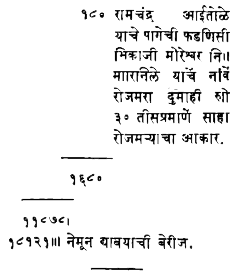 १८० रामचंद्र आईतोळे
याचे पागेची फडणिसी
भिकाजी मोरेश्वर नि॥
मारानेले याचें नांवें
रोजमरा दुमाही रुो
३० तीसप्रमाणें साहा
रोजमऱ्याचा आकार.
१६८०
११८७८।
१८१२१॥। नेमून द्यावयाची बेरीज.